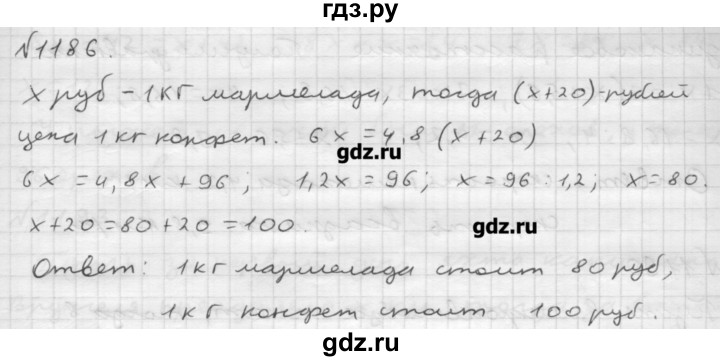 гдз.ру
№1186.
х руб – 1 кг мармелада, тогда (х+20)-рублей
цена 1 кг конфет. 6х = 4,8 (х + 20)
гдз.ру
6х = 4,8х + 96; 1,2х = 96; х = 96 : 1,2; х = 80.
х+20 = 80 + 20 = 100.
гдз.ру
Ответ: 1 кг мармелада стоит 80 руб,
1 кг конфет стоит 100 руб.